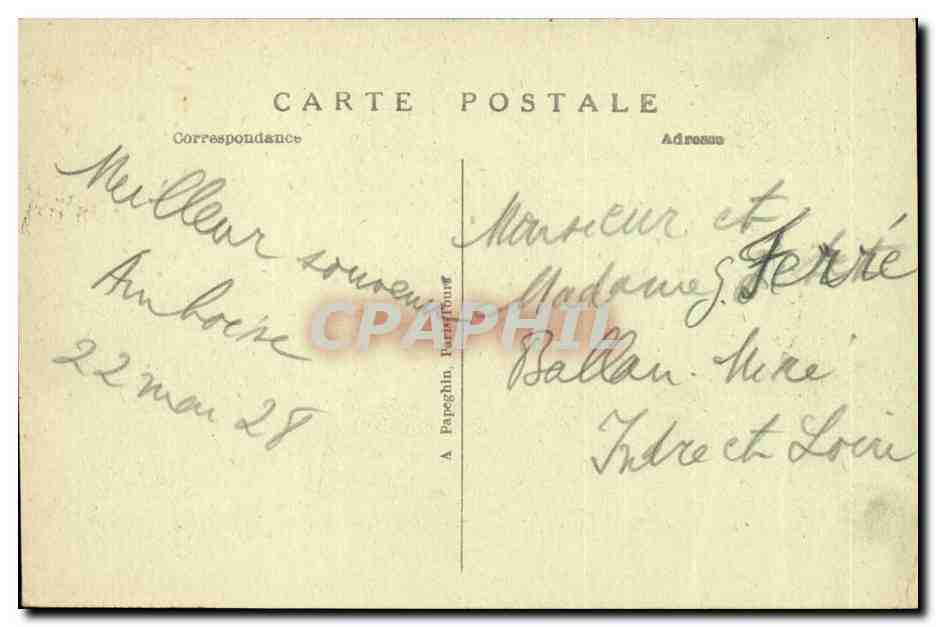 CARTE POSTALE
Correspondance
Adresse
Meilleur souvenir
Amboise
22 mai 28
Monsieur et
Madame G. Ferré
Ballan-Miré
Indre et Loire
A Papeghin, Paris-Tours
CPAPHIL